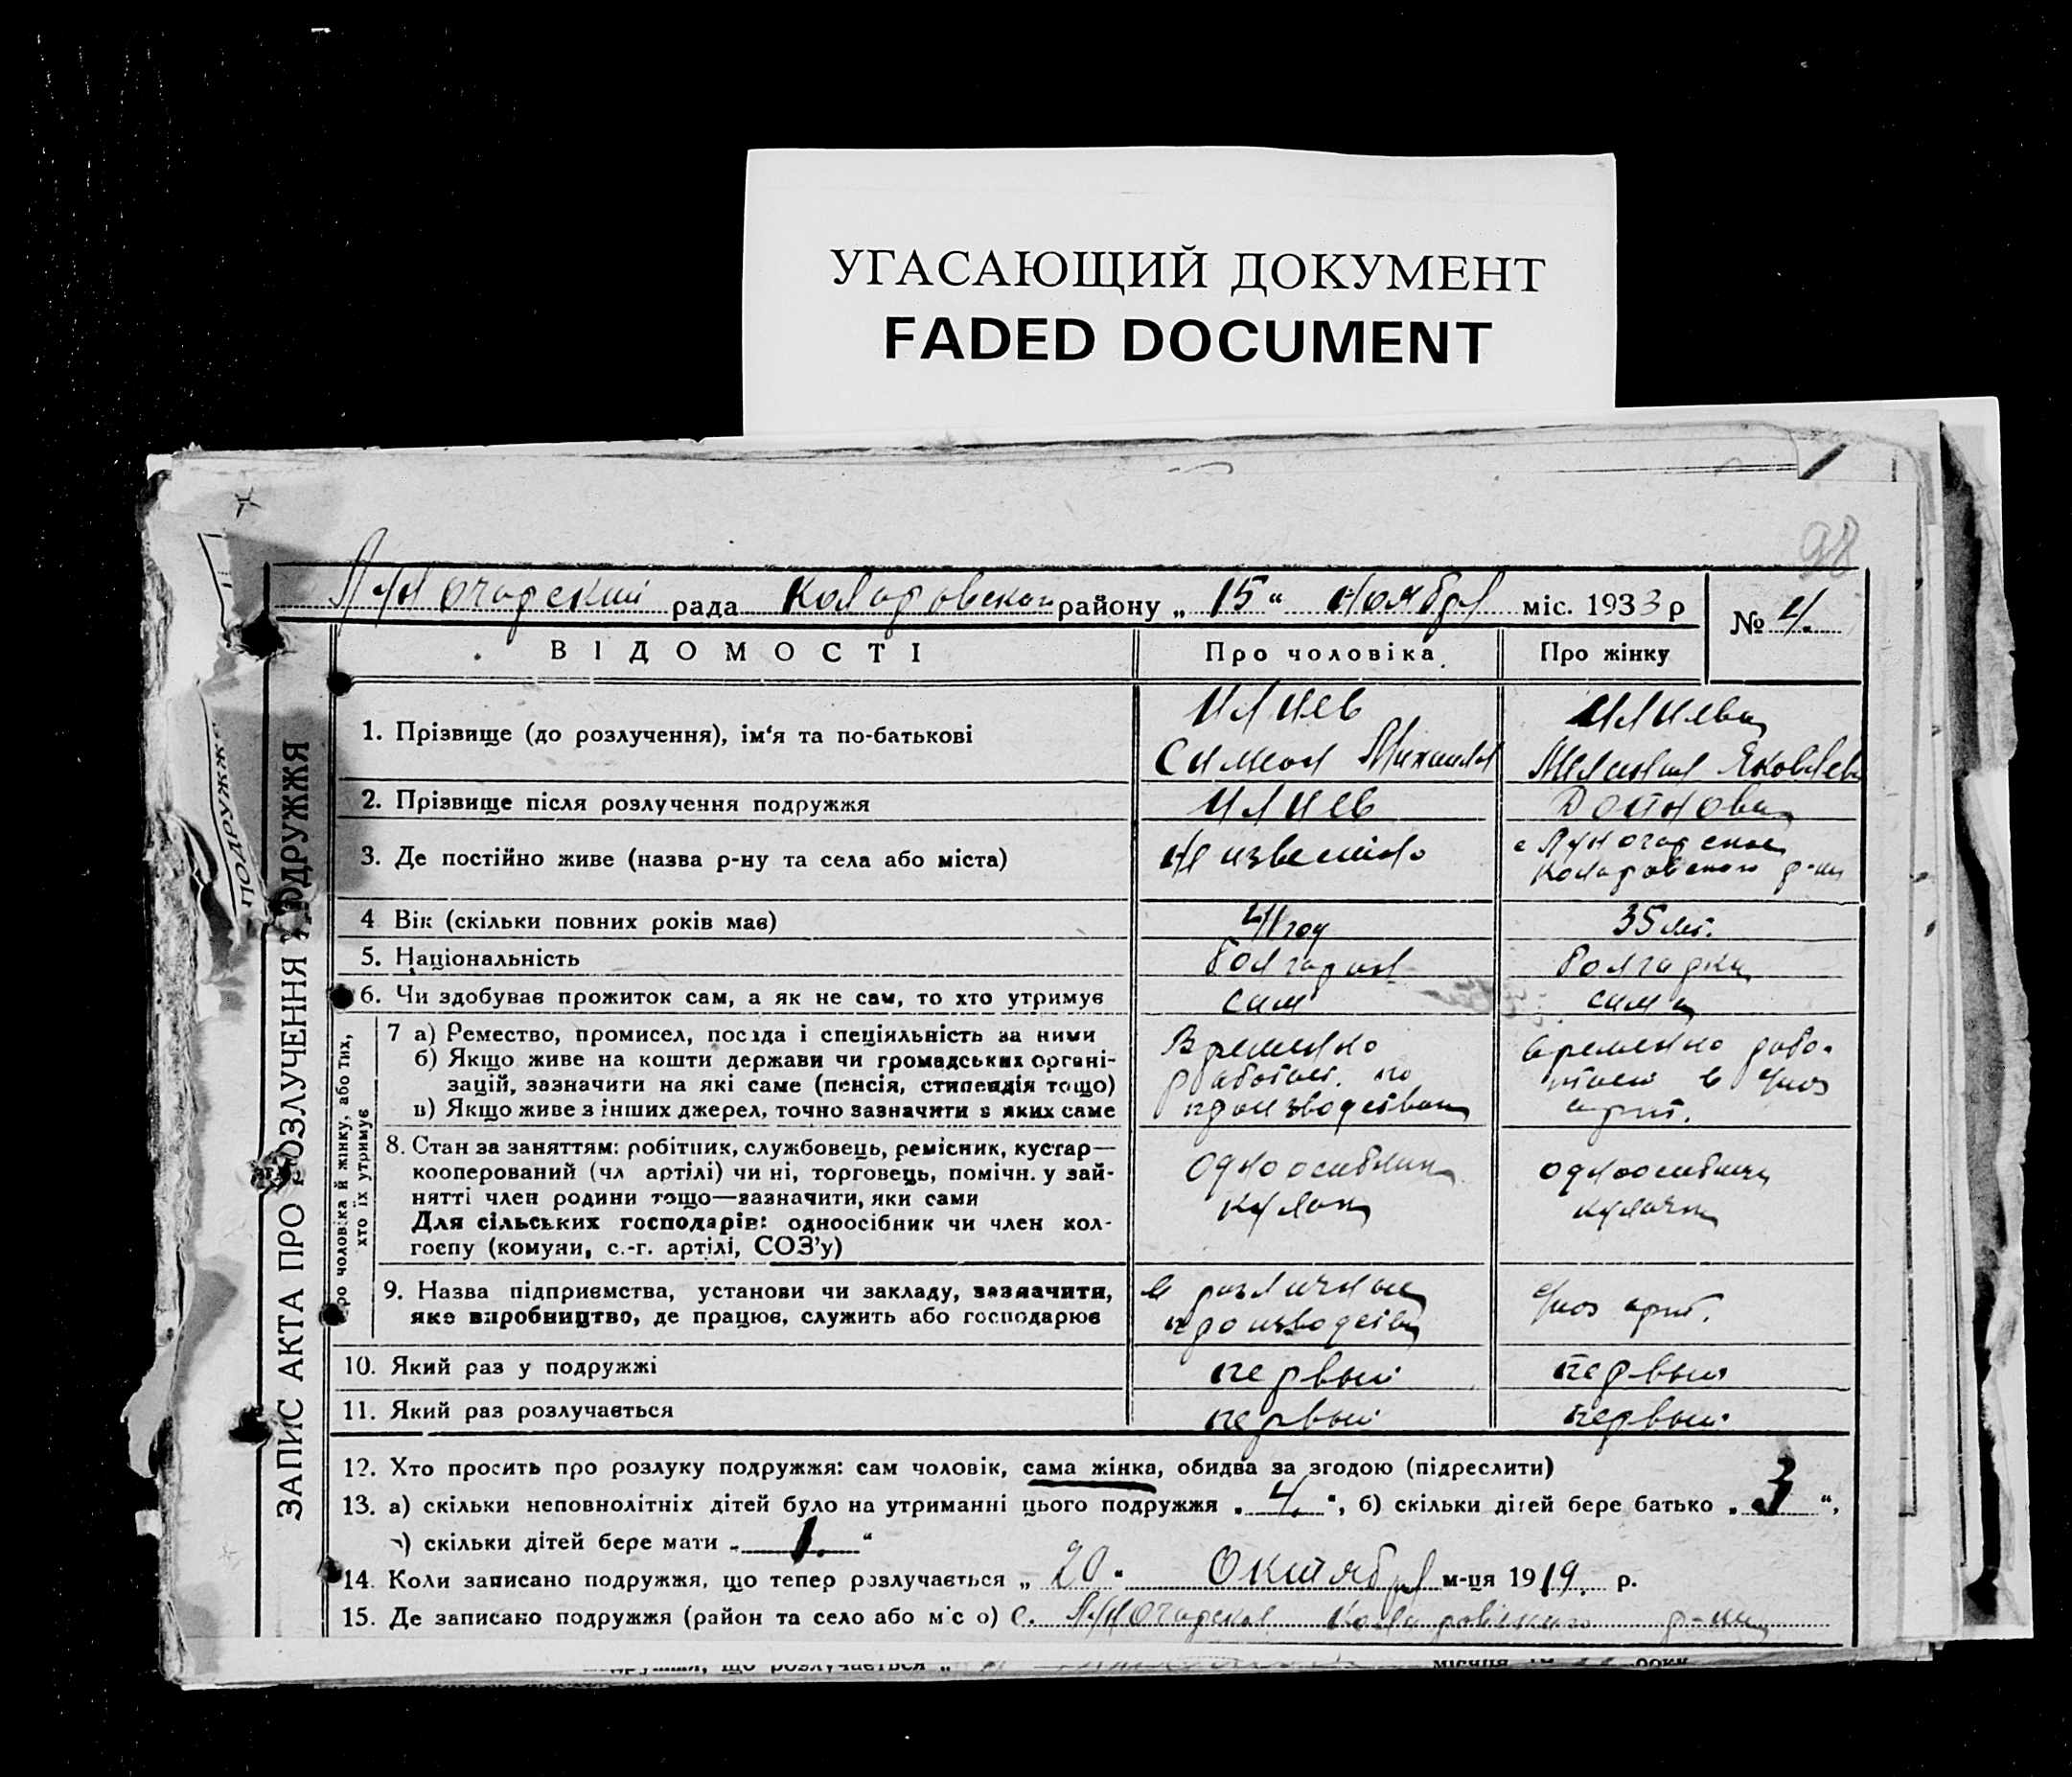 УГАСАЮЩИЙ ДОКУМЕНТ
FADED DOCUMENT
98
Луногарский рада Коларовского району „ 15 “ ноября міс. 1933 р
№ 4.
ЗАПИС АКТА ПРО РОЗЛУЧЕННЯ ПОДРУЖЖЯ
ВІДОМОСТІ Про чоловіка Про жінку
1. Прізвище (до розлучення), ім'я та по-батькові
Илиев
Симеон Михаил
Илиева
Мелания Яковлев
2. Прізвище після розлучення подружжя Илиев Дойнова
3. Де постійно живе (назва р-ну та села або міста) неизвестно
с Луногарское
Коларовского р-на
4 Вік (скільки повних років має) 41 год 35 лет.
5. Національність болгарин болгарка
6. Чи здобуває прожиток сам, а як не сам, то хто утримує сам сама
ро чоловіка й жінку, або тих,
хто їх утримує
7 а) Ремество, промисел, посада і спеціяльність за ними
б) Якщо живе на кошти держави чи громадських органі-
зацій, зазначити на які саме (пенсія, стипендія тощо)
в) Якщо живе з інших джерел, точно зазначити з яких саме
Временно
работает по
производствам
временно рабо-
тает в
8. Стан за заняттям: робітник, службовець, ремісник, кустар—
кооперований (чл артілі) чи ні, торговець, помічн. у зай-
нятті член родини тощо—зазначити, яки сами
Для сільських господарів: одноосібник чи член кол-
госпу (комуни, с.-г. артілі, СОЗ'у)
одноосибник
кулак
одноосибница
кулачка
9. Назва підприємства, установи чи закладу, зазначити,
яке виробництво, де працює, служить або господарює
в различных
производства
10. Який раз у подружжі первый первый
11. Який раз розлучається первый первый
12. Хто просить про розлуку подружжя: сам чоловік, сама жінка, обидва за згодою (підреслити)
13. а) скільки неповнолітніх дітей було на утриманні цього подружжя „ 4. “, б) скільки дітей бере батько „ 3 “,
в) скільки дітей бере мати „ 1. “
14. Коли записано подружжя, що тепер розлучається „ 20 “ Октября м-ця 1919. р.
15. Де записано подружжя (район та село або місто) с. Луногарское Коларовского р-на